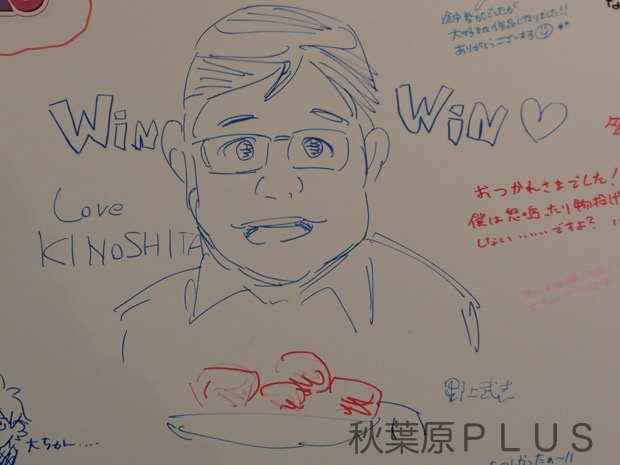 途中参加でしたが
大好きな作品になりました!!
ありがとうございます
WiN
WiN♡
Love
KINOSHITA
おつかれさまでした!
僕は怒鳴ったり物投げ
しない……ですよ?
野上武志
大ちかん....
秋葉原PLUS